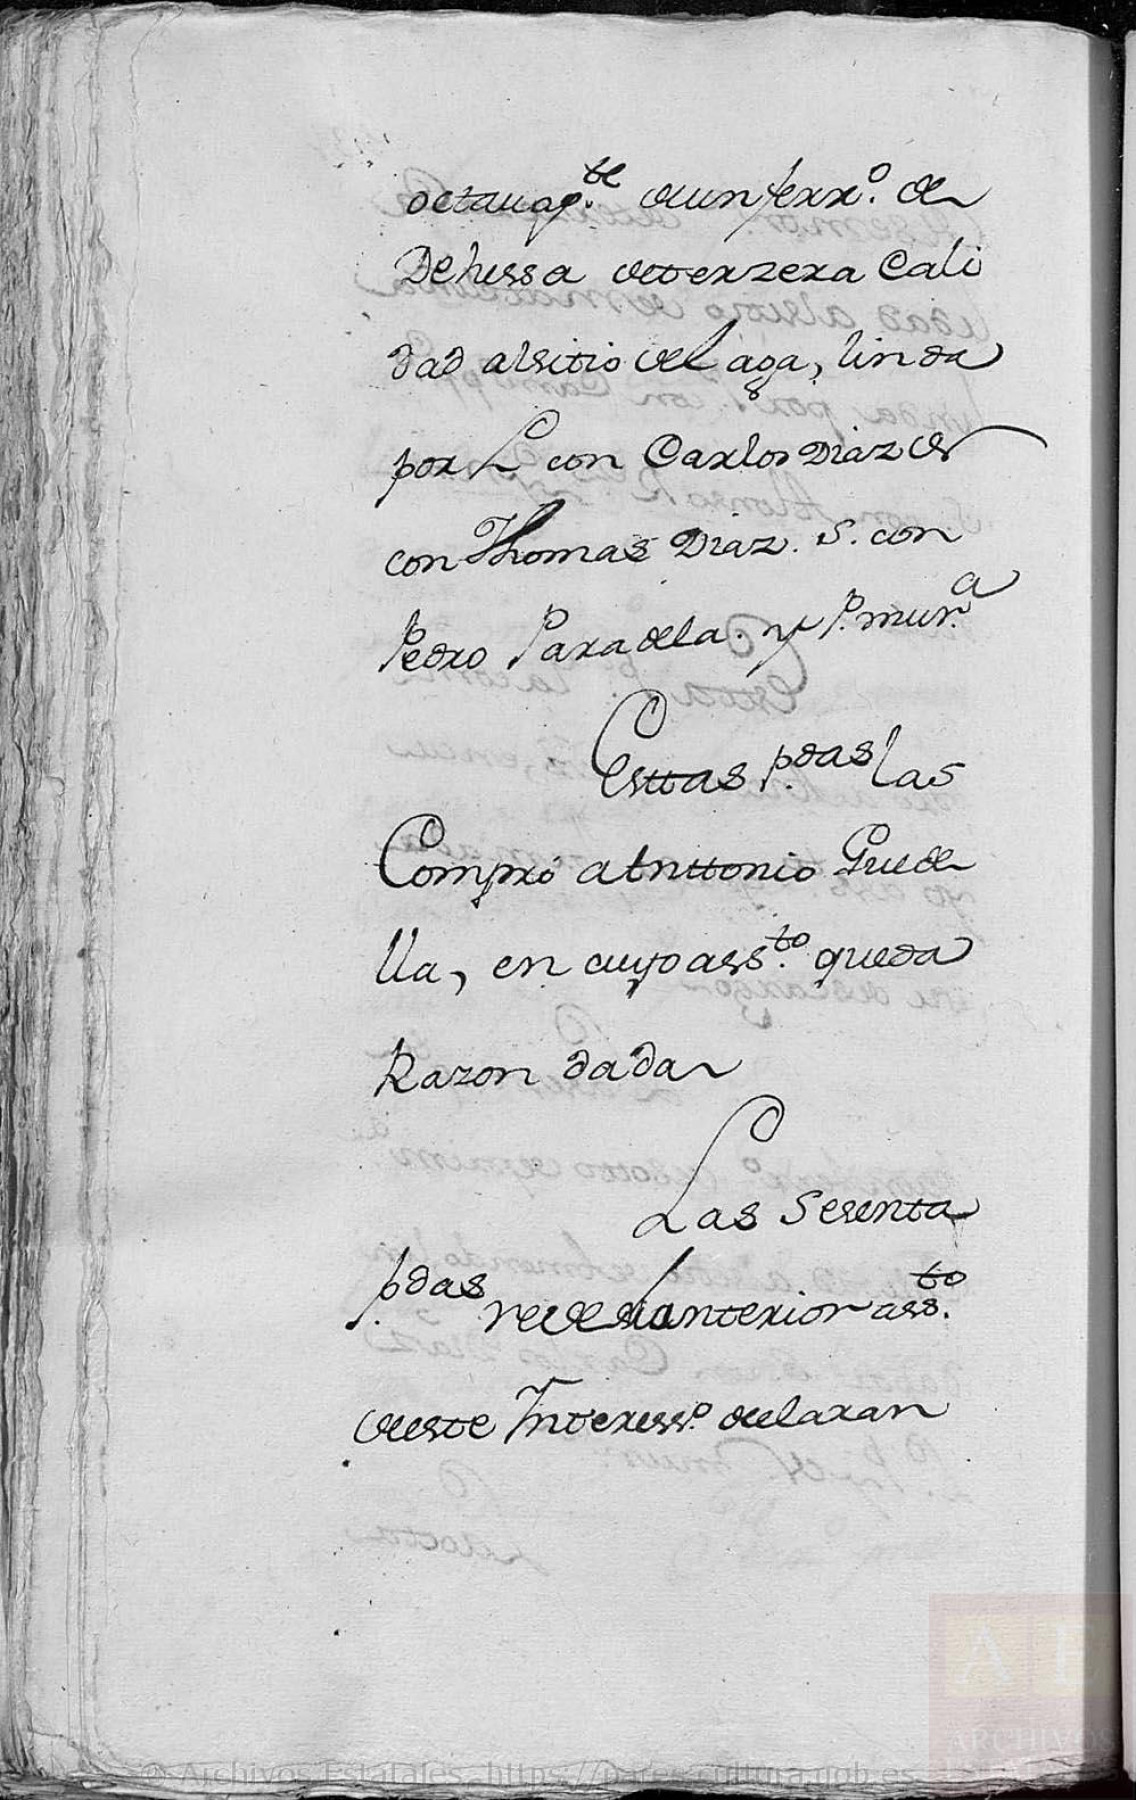 octaua p.te de un ferr.o de
Dehessa de terzera Cali
dad al sitio de Laga, linda
por L con Carlos Diaz
con Thomas Diaz. S. con
Pedro Paradela. y P. mur.a
Esttas p.das las
Compró a Anttonio Grude
lla, en cuyo ass.to queda
Razon dada
Las Sesenta
p.das anterior ass.to
de este Interess.o declaran
© Archivos Estatales, https://pares.cultura.gob.es
A E
ARCHIVOS